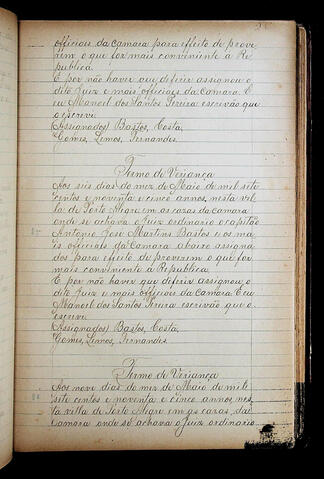 officiaes da Camara para effeito de prove
rem o que for mais conveniente à Re
publica.
E por não haver que deferir assignou o
dito Juiz e mais officiaes da Camara. E
eu Manoel dos Santos Pereira escrivão que
o escreve
(Assignados) Bastos, Costa,
Gomes, Lemos, Fernandes.
Termo de Veriança
Aos seis dias do mez de Maio de mil sete
centos e noventa e cinco annos, nesta vil
la de Porto Alegre em as cazas da Camara
onde se achava o Juiz ordinario o capitão
Antonio José Martins Bastos e os ma
is officiaes da Camara abaixo assigna
dos para effeito de proverem o que for
mais conveniente à Republica.
E por não haver que deferir assignou o
dito Juiz e mais officiaes da Camara. E eu
Manoel dos Santos Pereira escrivão que o
escreve
(Assignados) Bastos, Costa,
Gomes, Lemos, Fernandes.
Termo de Veriança
Aos nove dias do mez de Maio de mil
sete centos e noventa e cinco annos, nes
ta villa de Porto Alegre em as cazas da
Camara onde se achava o Juiz ordinario